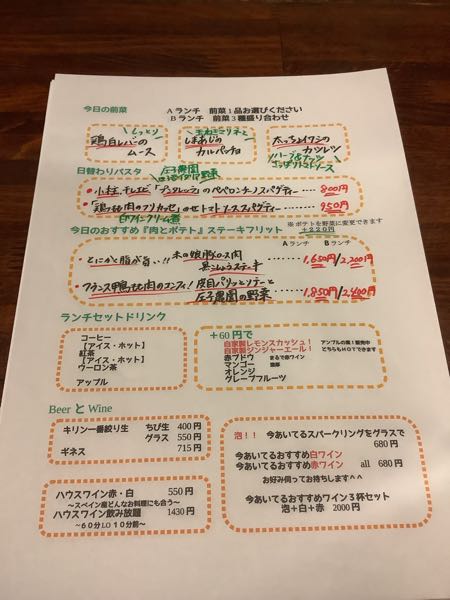 今日の前菜
Aランチ 前菜1品お選びください
Bランチ 前菜3種盛り合わせ
しっとり
鶏白レバーの
ムース
玉ねぎマリネと
しまあじの
カルパッチョ
カツレツ
日替わりパスタ
庄子農園
のペペロンチーノスパゲティー 800円
「鶏もも肉のフリカッセ」のせトマトソーススパゲティー 950円
白ワインクリーム煮
今日のおすすめ『肉とポテト』ステーキフリット
※ポテトを野菜に変更できます
+220円
Aランチ Bランチ
とにかく脂が旨い!!
1,650円/2,200円
黒こしょうステーキ
フランス鴨もも肉のコンフィ!皮目パリッとソテーと
庄子農園の野菜
1,850円/2,400円
ランチセットドリンク
コーヒー
【アイス・ホット】
紅茶
【アイス・ホット】
ウーロン茶
アップル
+60円で
自家製レモンスカッシュ!
自家製ジンジャーエール!
アンプルの素!販売中
どちらもHOTできます
赤ブドウ まるで赤ワイン
マンゴー 濃厚
オレンジ
グレープフルーツ
Beer と Wine
キリン一番絞り生 ちび生 400円
グラス 550円
ギネス 715円
ハウスワイン赤・白 550円
~スペイン産どんなお料理にも合う~
ハウスワイン飲み放題 1430円
~60分LO10分前~
泡!! 今あいてるスパークリングをグラスで
680円
今あいてるおすすめ白ワイン
今あいてるおすすめ赤ワイン all 680円
お好み伺ってお持ちします^^
今あいてるおすすめワイン3杯セット
泡+白+赤 2000円